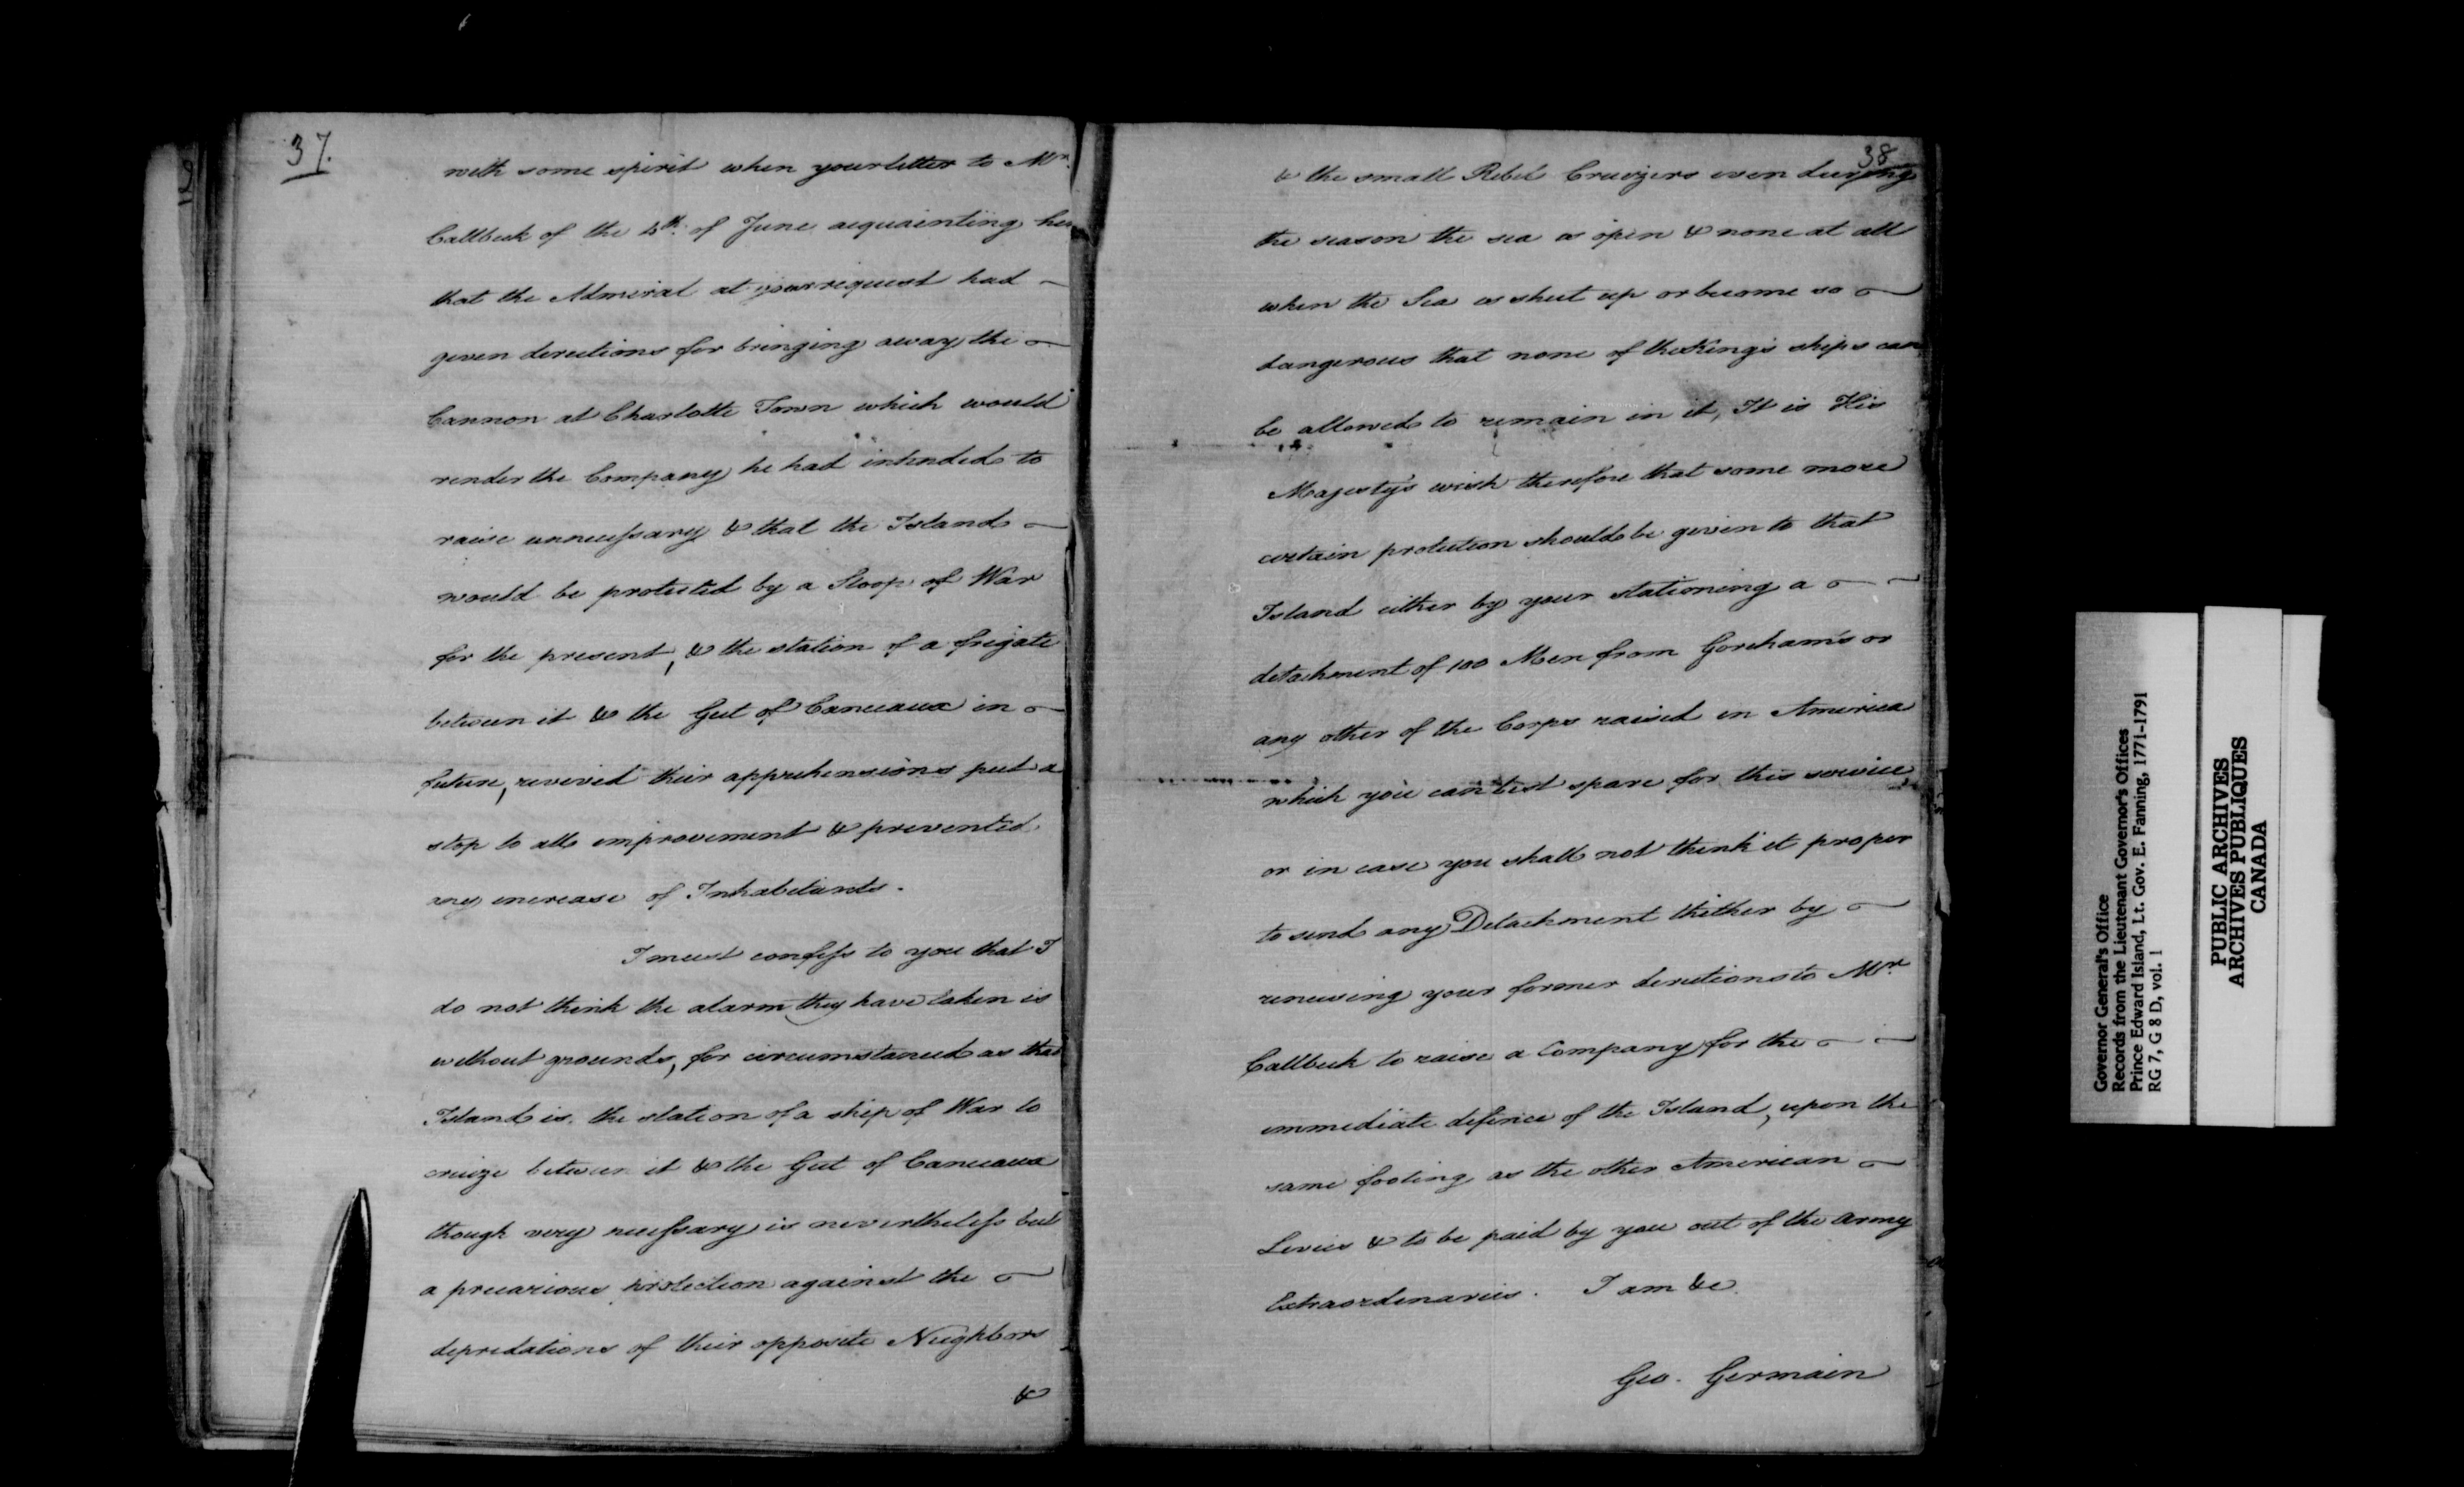 37.
with some spirit when your letter to Mr.
Callbeck of the 4th. of June acquainting him
that the Admiral at your request had
given directions for bringing away the
Cannon at Charlotte Town which would
render the Company he had intended to
raise unnecessary & that the Island
would be protected by a Sloop of War
for the present, & the station of a frigate
between it & the Gut of Canceaux in
future, revived their apprehensions put a
stop to all improvement & prevented
any increase of Inhabitants.
I must confess to you that I
do not think the alarm they have taken is
without grounds, for circumstanced as that
Island is, the station of a ship of War to
cruize between it & the Gut of Canceaux
though very necessary is nevertheless but
a precarious protection against the
depredations of their opposite Neighbors
&
38
& the small Rebel Cruizers even during
the season the sea is open & none at all
when the Sea is shut up or become so
dangerous that none of the King's ships can
be allowed to remain in it, It is His
Majesty's wish therefore that some more
certain protection should be given to that
Island either by your stationing a
detachment of 100 Men from Goreham's or
any other of the Corps raised in America
which you can best spare for this service,
or in case you shall not think it proper
to send any Detachment thither by
renewing your former directions to Mr.
Callbeck to raise a Company for the
immediate defence of the Island, upon the
same footing as the other American
Levies & to be paid by you out of the Army
Extraordinaries. I am &c
Geo. Germain
Governor General's Office
Records from the Lieutenant Governor's Offices
Prince Edward Island, Lt. Gov. E. Fanning, 1771-1791
RG 7, G 8 D, vol. 1
PUBLIC ARCHIVES
ARCHIVES PUBLIQUES
CANADA